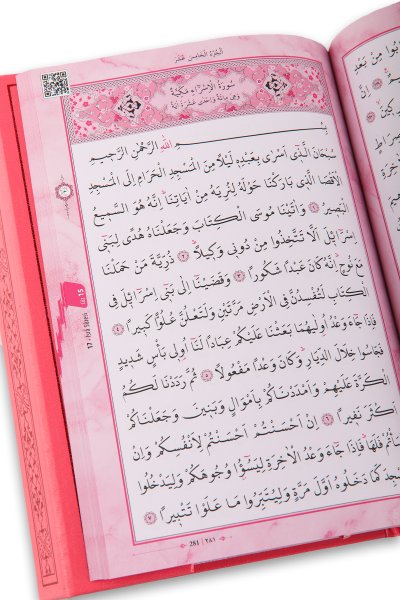 اَلْجُزْءُ الْخَامِسَ عَشَرَ
سُورَةُ الْاِسْرَاءِ مَكِّيَّةٌ
وَهِىَ مِائَةٌ وَاِحْدٰى عَشْرَةَ اٰيَةً
بِسْمِ اللّٰهِ الرَّحْمٰنِ الرَّحٖيمِ
سُبْحَانَ الَّذٖٓى اَسْرٰى بِعَبْدِهٖ لَيْلًا مِنَ الْمَسْجِدِ الْحَرَامِ اِلَى الْمَسْجِدِ
الْاَقْصَا الَّذٖى بَارَكْنَا حَوْلَهُ لِنُرِيَهُ مِنْ اٰيَاتِنَا اِنَّهُ هُوَ السَّمٖيعُ
الْبَصٖيرُ ﴿١﴾ وَاٰتَيْنَا مُوسَى الْكِتَابَ وَجَعَلْنَاهُ هُدًى لِبَنٖٓى
اِسْرَٓائٖلَ اَلَّا تَتَّخِذُوا مِنْ دُونٖى وَكٖيلًا ﴿٢﴾ ذُرِّيَّةَ مَنْ حَمَلْنَا
مَعَ نُوحٍ اِنَّهُ كَانَ عَبْدًا شَكُورًا ﴿٣﴾ وَقَضَيْنَٓا اِلٰى بَنٖٓى اِسْرَٓائٖلَ فِى
الْكِتَابِ لَتُفْسِدُنَّ فِى الْاَرْضِ مَرَّتَيْنِ وَلَتَعْلُنَّ عُلُوًّا كَبٖيرًا ﴿٤﴾
فَاِذَا جَٓاءَ وَعْدُ اُو۫لٰيهُمَا بَعَثْنَا عَلَيْكُمْ عِبَادًا لَنَٓا اُو۬لٖى بَاْسٍ شَدٖيدٍ
فَجَاسُوا خِلَالَ الدِّيَارِ وَكَانَ وَعْدًا مَفْعُولًا ﴿٥﴾ ثُمَّ رَدَدْنَا لَكُمُ
الْكَرَّةَ عَلَيْهِمْ وَاَمْدَدْنَاكُمْ بِاَمْوَالٍ وَبَنٖينَ وَجَعَلْنَاكُمْ
اَكْثَرَ نَفٖيرًا ﴿٦﴾ اِنْ اَحْسَنْتُمْ اَحْسَنْتُمْ لِاَنْفُسِكُمْ وَاِنْ
اَسَاْتُمْ فَلَهَا فَاِذَا جَٓاءَ وَعْدُ الْاٰخِرَةِ لِيَسُٓؤُ۫ا وُجُوهَكُمْ وَلِيَدْخُلُوا
الْمَسْجِدَ كَمَا دَخَلُوهُ اَوَّلَ مَرَّةٍ وَلِيُتَبِّرُوا مَا عَلَوْا تَتْبٖيرًا ﴿٧﴾
281 | ٢٨١
Cüz 15
17 - İsrâ Sûresi